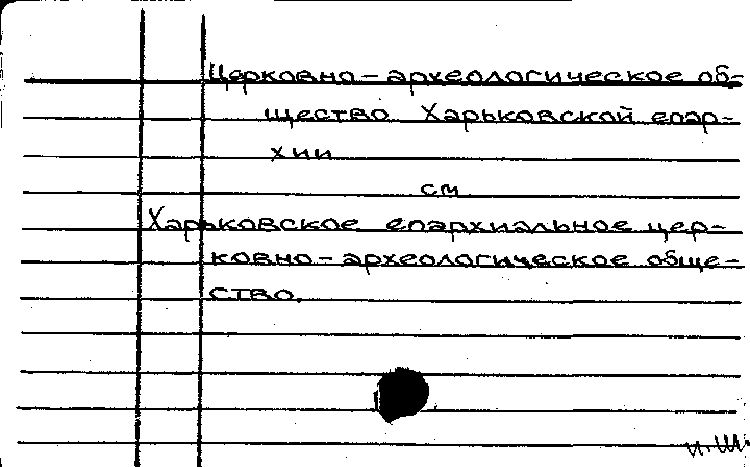 Церковно-археологическое об-
щество Харьковской епар-
хии
см
Харьковское епархиальное цер-
ковно-археологическое обще-
ство.
н. Ш.